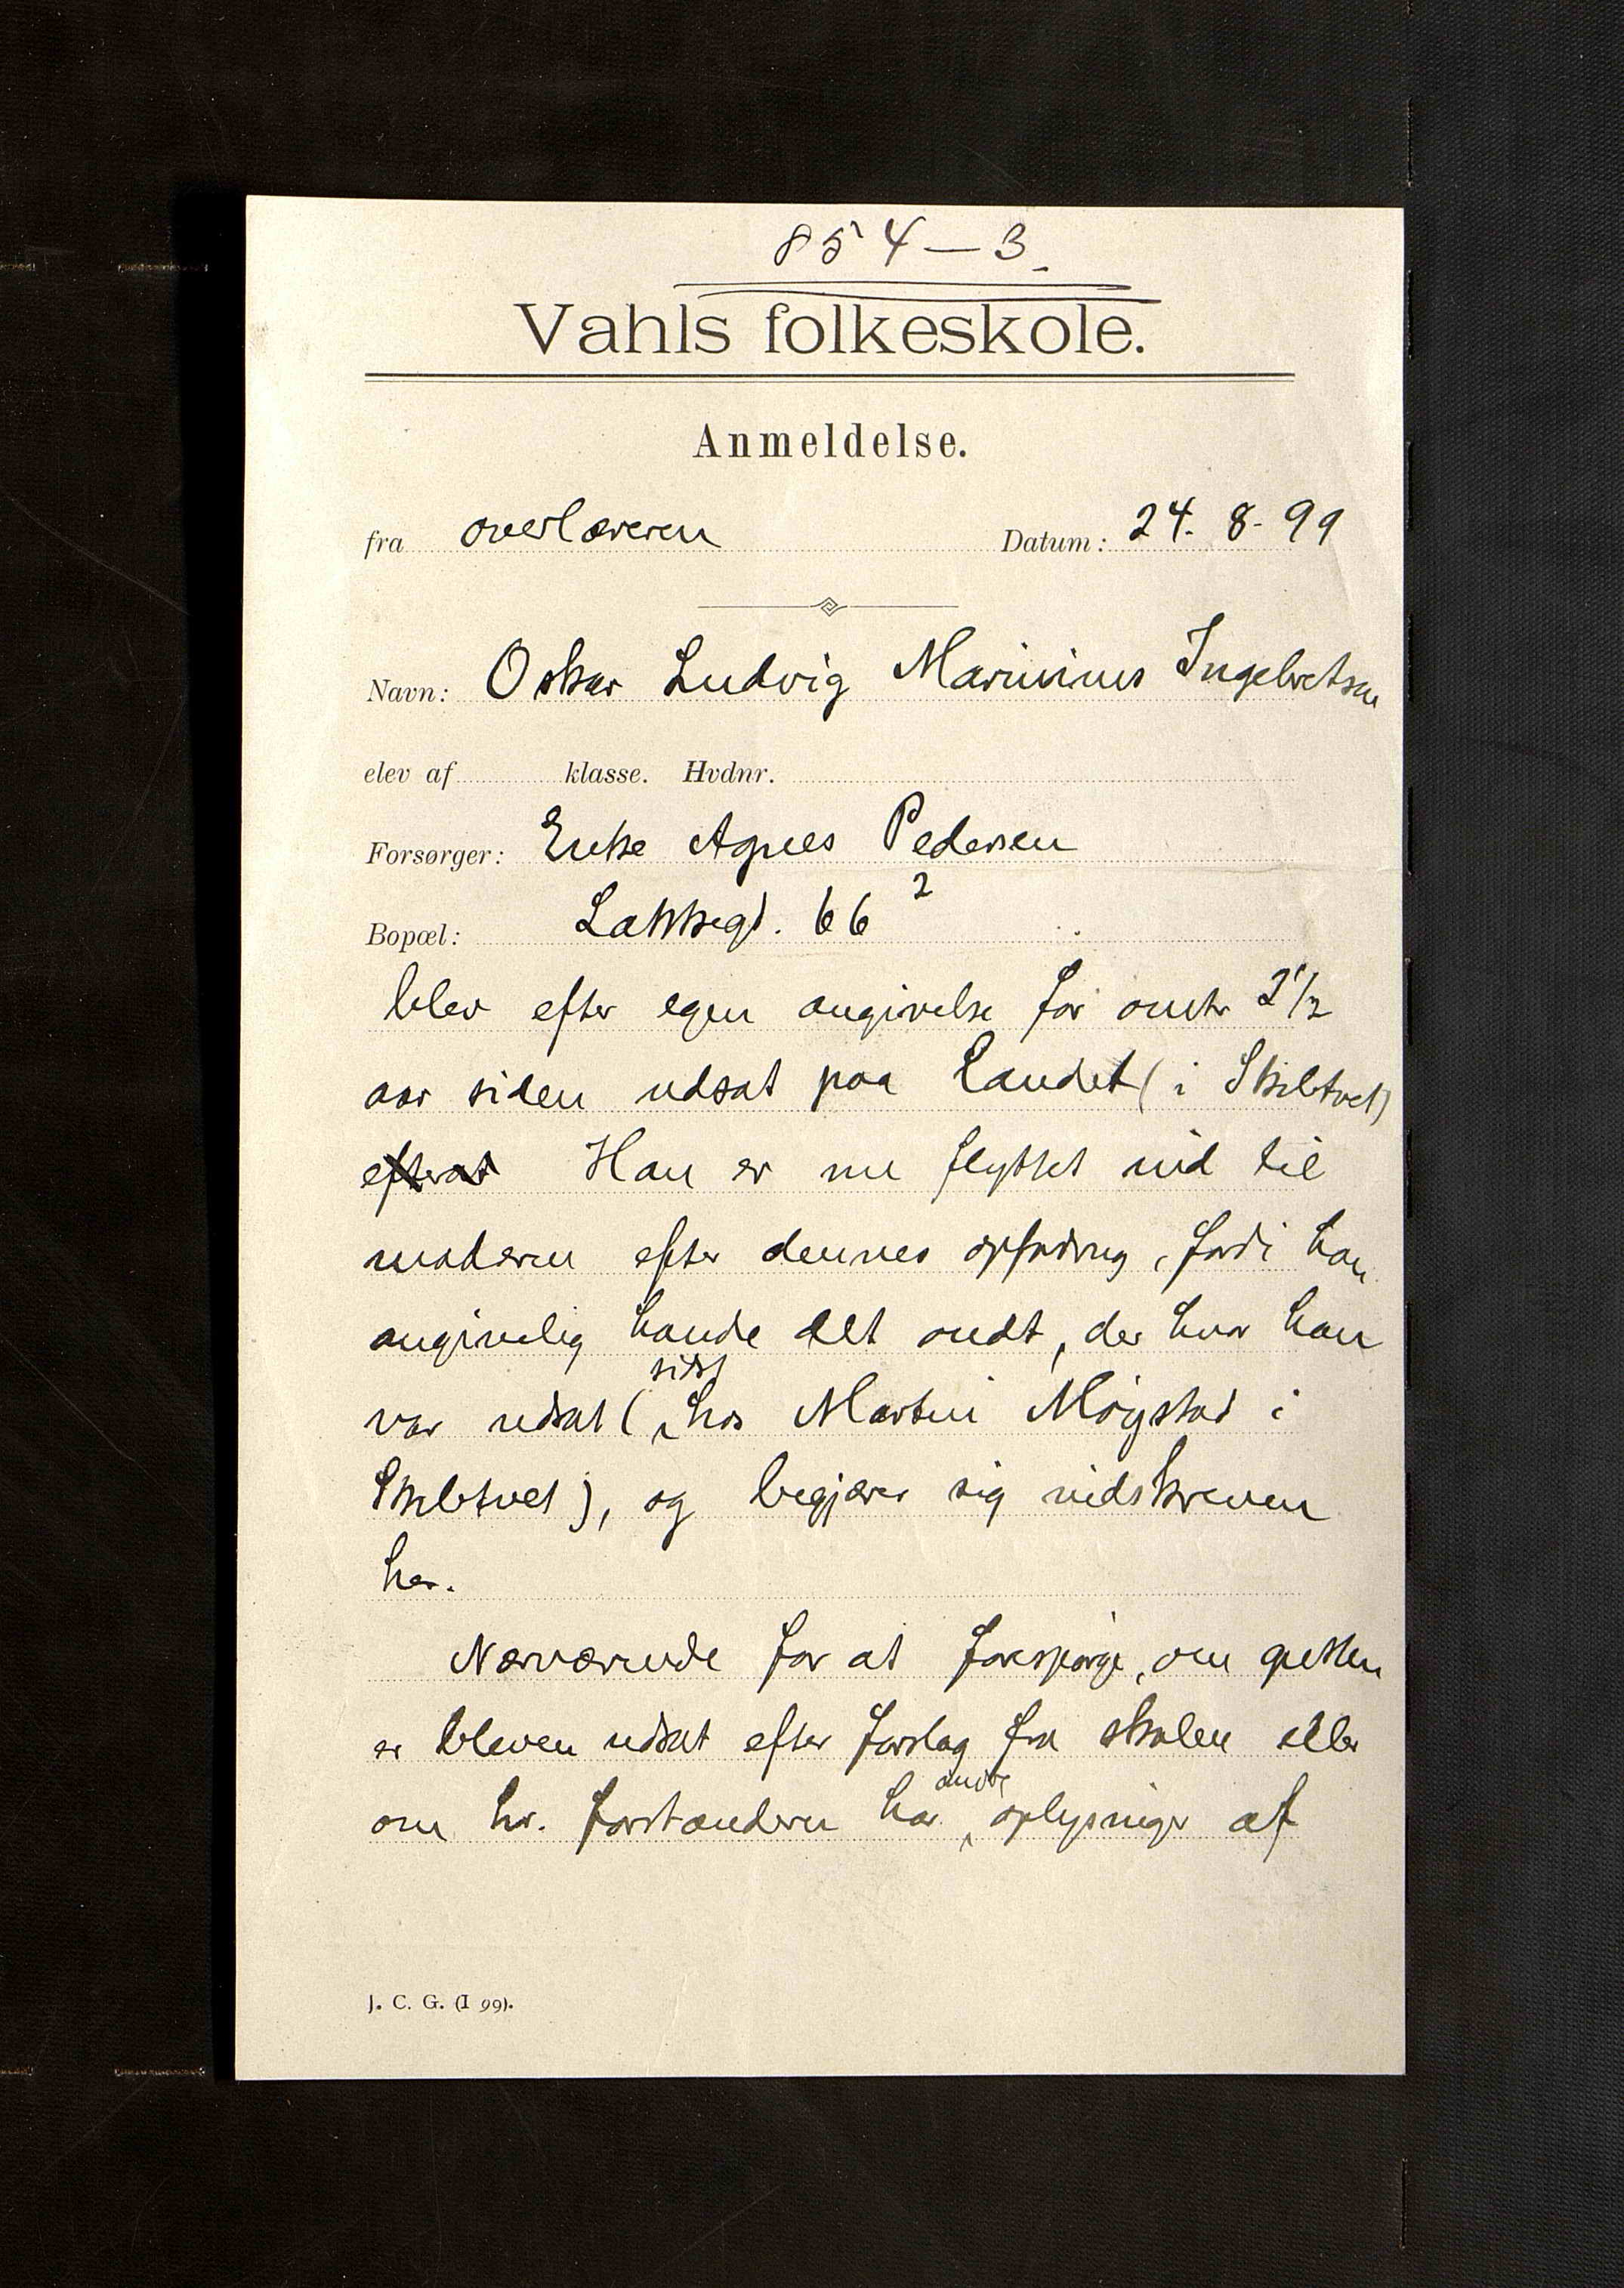 854-3.
Vahls folkeskole.
Anmeldelse.
fra overlæreren Datum: 24. 8. 99
Navn: Oskar Ludvig Marinius Ingebretsen
elev af klasse. Hvdnr.
Forsørger: Enke Agnes Pedersen
Bopæl: Lakkegd. 66 2
blev efter egen angivelse for omtr 2 1/2
aar siden udsat paa landet (i Skibtvet)
efterat Han er nu flyttet ind til
moderen efter dennes opfordring, fordi han
angivelig havde det ondt, der hvor han
var udsat (sidst hos Martin Møgstad i
Skibtvet), og begjærer sig indskreven
her.
Nærværende for at forespørge, om gutten
er bleven udsat efter forslag fra skolen eller
om hr. forstanderen har andre oplysninger af
J. C. G. (I 99).